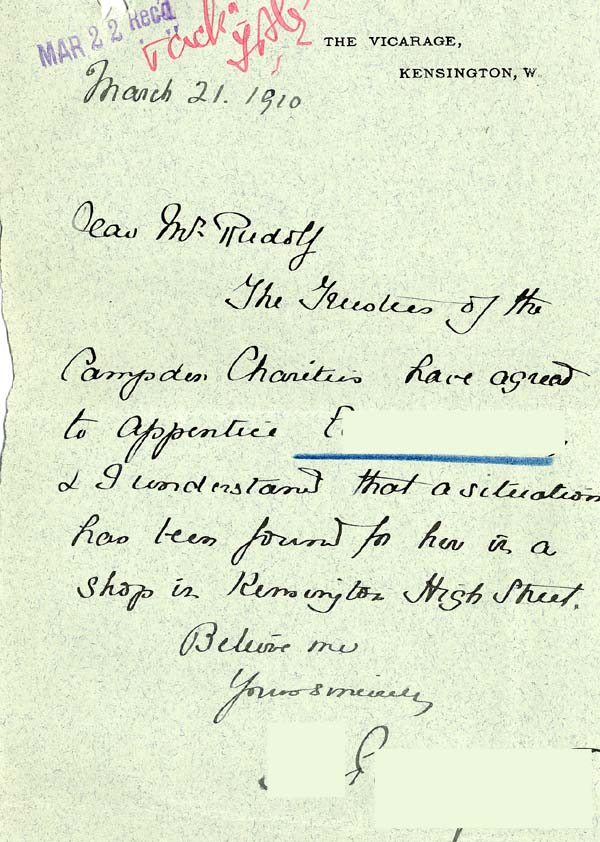 MAR 22 Recd
THE VICARAGE,
KENSINGTON, W.
March 21. 1910
Dear Mr. Rudolf
The Trustees of the
Campden Charities have agreed
to apprentice E
& I understand that a situation
has been found for her in a
shop in Kensington High Street.
Believe me
Yours sincerely